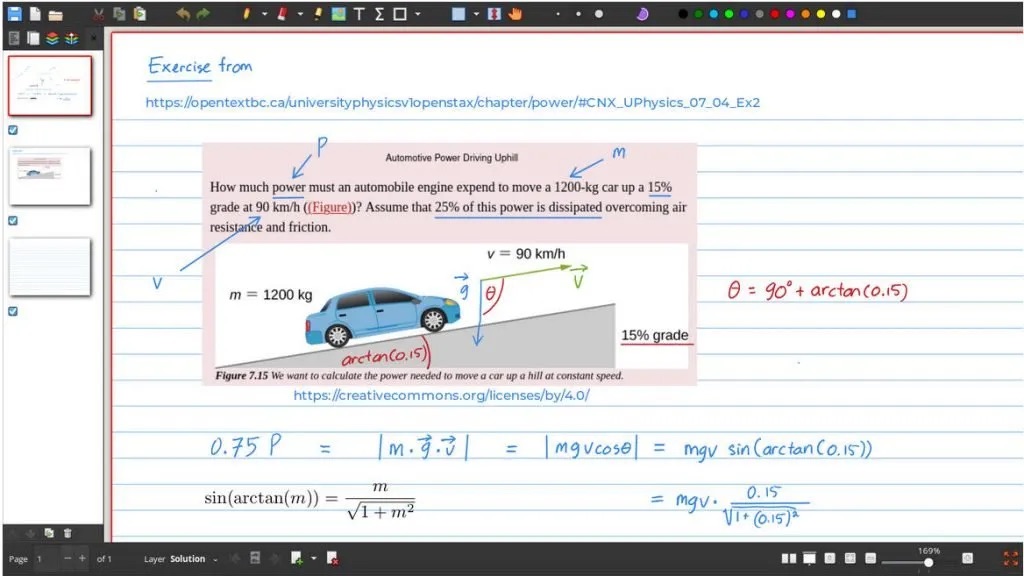 Exercise from
https://opentextbc.ca/universityphysicsv1openstax/chapter/power/#CNX_UPhysics_07_04_Ex2
P
m
Automotive Power Driving Uphill
How much power must an automobile engine expend to move a 1200-kg car up a 15%
grade at 90 km/h ((Figure))? Assume that 25% of this power is dissipated overcoming air
resistance and friction.
v
v = 90 km/h
m = 1200 kg
g⃗
θ
v⃗
θ = 90° + arctan(0.15)
15% grade
arctan(0.15)
Figure 7.15 We want to calculate the power needed to move a car up a hill at constant speed.
https://creativecommons.org/licenses/by/4.0/
0.75 P = |m · g⃗ · v⃗| = |mgv cosθ| = mgv sin(arctan(0.15))
sin(arctan(m)) = m / √(1 + m²)
= mgv · 0.15 / √(1 + (0.15)²)
Page 1 of 1 Layer Solution 169%